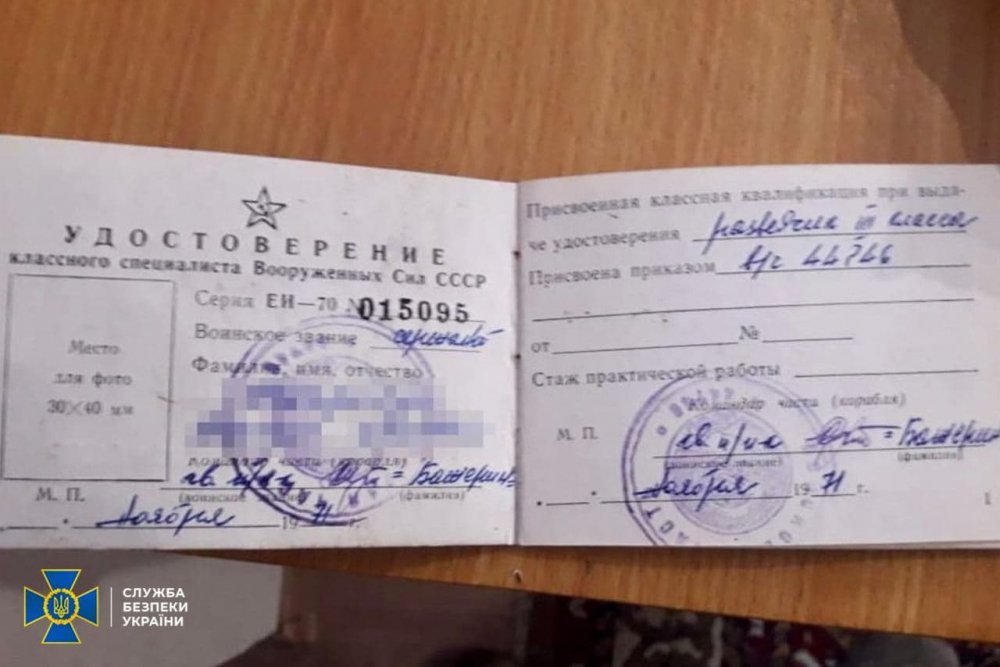 УДОСТОВЕРЕНИЕ
классного специалиста Вооруженных Сил СССР
Серия ЕИ—70 № 015095
Воинское звание
Фамилия, имя, отчество
Место
для фото
30×40 мм
командир части (корабля)
гв п/п-к = Батерин
(воинское звание) (фамилия)
М. П.
" " Ноября 1971 г.
Присвоенная классная квалификация при выда-
че удостоверения разведчик III класса
Присвоена приказом в/ч 44746
от № 
Стаж практической работы
Командир части (корабля)
М. П. гв п/п-к = Батерин
(воинское звание) (фамилия)
" " Ноября 1971 г.
1
СЛУЖБА
БЕЗПЕКИ
УКРАЇНИ